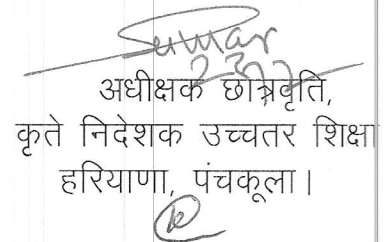 Sumar
अधीक्षक छात्रवृति,
कृते निदेशक उच्चतर शिक्षा
हरियाणा, पंचकूला।